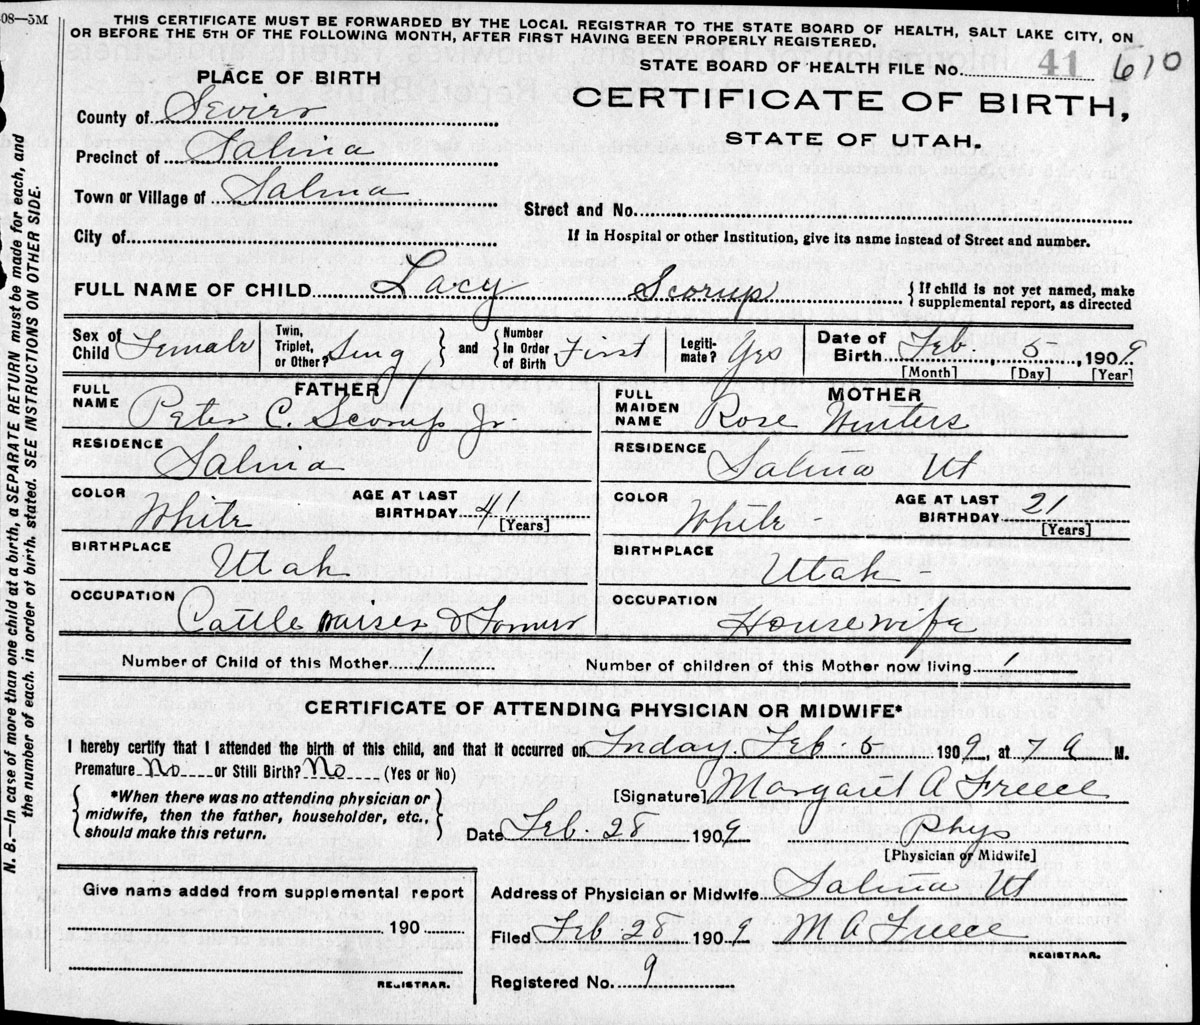 08—5M
THIS CERTIFICATE MUST BE FORWARDED BY THE LOCAL REGISTRAR TO THE STATE BOARD OF HEALTH, SALT LAKE CITY, ON
OR BEFORE THE 5TH OF THE FOLLOWING MONTH, AFTER FIRST HAVING BEEN PROPERLY REGISTERED.
STATE BOARD OF HEALTH FILE No. 41 610
PLACE OF BIRTH
CERTIFICATE OF BIRTH,
STATE OF UTAH.
County of Sevier
Precinct of Salina
Town or Village of Salina
Street and No.
City of
If in Hospital or other Institution, give its name instead of Street and number.
FULL NAME OF CHILD Lacy Scorup { If child is not yet named, make supplemental report, as directed
Sex of Child Female Twin, Triplet, or Other? Sing and Number In Order of Birth First Legitimate? Yes Date of Birth Feb. 5, 1909
[Month] [Day] [Year]
FATHER
FULL NAME Peter C. Scorup Jr.
RESIDENCE Salina
COLOR White AGE AT LAST BIRTHDAY 41 [Years]
BIRTHPLACE Utah
OCCUPATION Cattle raiser & Farmer
MOTHER
FULL MAIDEN NAME Rose Winters
RESIDENCE Salina Ut
COLOR White - AGE AT LAST BIRTHDAY 21 [Years]
BIRTHPLACE Utah -
OCCUPATION Housewife
Number of Child of this Mother 1 Number of children of this Mother now living 1
CERTIFICATE OF ATTENDING PHYSICIAN OR MIDWIFE*
I hereby certify that I attended the birth of this child, and that it occurred on Friday. Feb. 5 1909, at 7 a M.
Premature No or Still Birth? No (Yes or No)
*When there was no attending physician or
midwife, then the father, householder, etc.,
should make this return.
[Signature] Margaret A Freece
Date Feb. 28 1909 Phys
[Physician or Midwife]
Give name added from supplemental report
190
REGISTRAR.
Address of Physician or Midwife Salina Ut
Filed Feb 28 1909 M A Freece
REGISTRAR.
Registered No. 9
N. B.—In case of more than one child at a birth, a SEPARATE RETURN must be made for each, and
the number of each. in order of birth. stated. SEE INSTRUCTIONS ON OTHER SIDE.